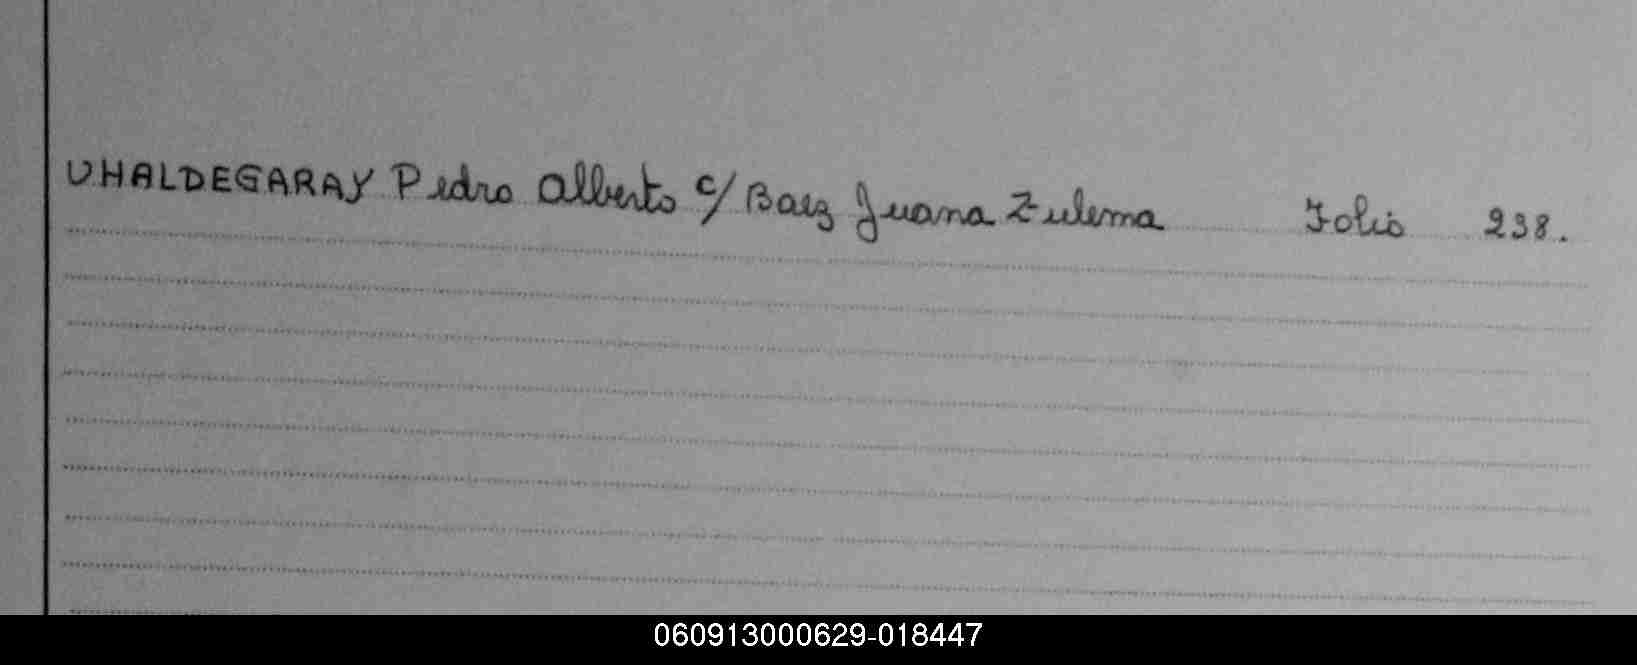 UHALDEGARAY Pedro Alberto c/ Baez Juana Zulema Folio 238.
060913000629-018447